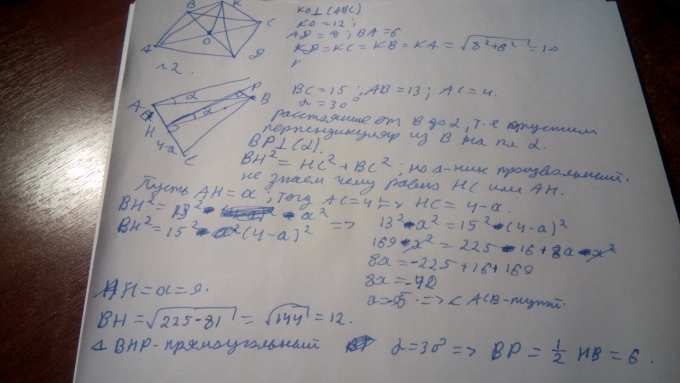 KO⊥(ABC)
KO=12;
AD=8; BA=6
KD=KC=KB=KA=√8²+6²=10
N2.
BC=15; AB=13; AC=4.
α=30°
расстояние от B до α, т.е опустим
перпендикуляр из B на пл. α.
BP⊥(α).
BH²=HC²+BC²; но
не знаем чему равно HC или AH.
Пусть AH=a; тогд AC=4 => HC=4-a.
BH²=13²-a²
BH²=15²-(4-a)²
=> 13²-a²=15²-(4-a)²
169-x²=225-16+8a-x²
8a=-225+16+169
8a=-40
a=-5 => <ACB-тупой.
AH=a=9.
BH=√225-81=√144=12.
Δ BHP-прямоугольный α=30° => BP=½HB=6.